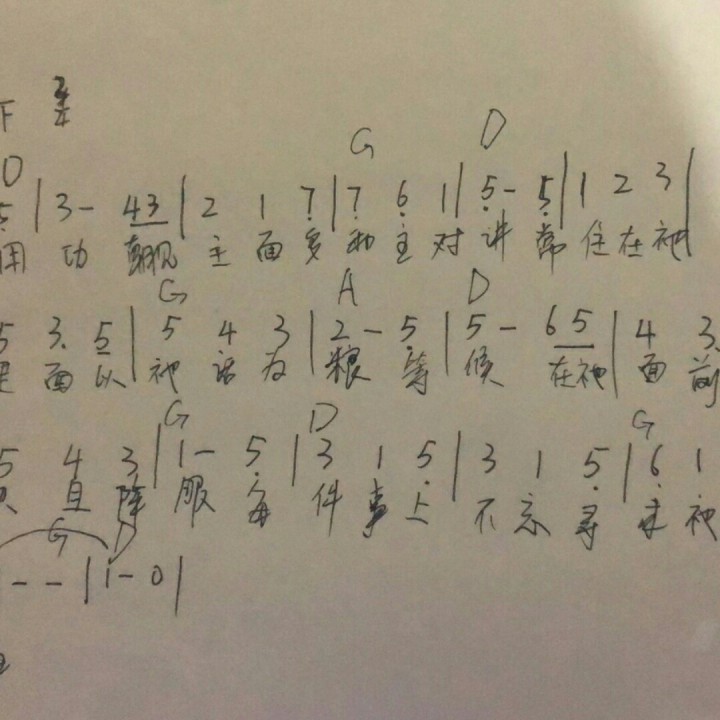 F 3/4
D G D
5 | 3 - 43 | 2 1 7 | 7 6 1 | 5 - 5 | 1 2 3 |
用 功 朝见 主 面 多 和 主 对 讲 常 住 在 祂
G A D
5 3. 5 | 5 4 3 | 2 - 5 | 5 - 65 | 4 3.
里 面 以 祂 话 为 粮 等 候 在祂 面 前
G D G
5 4 3 | 1 - 5 | 3 1 5 | 3 1 5 | 6 1
且 降 服 每 件 事 上 不 忘 寻 求 祂
G D
- - | 1 - 0 |